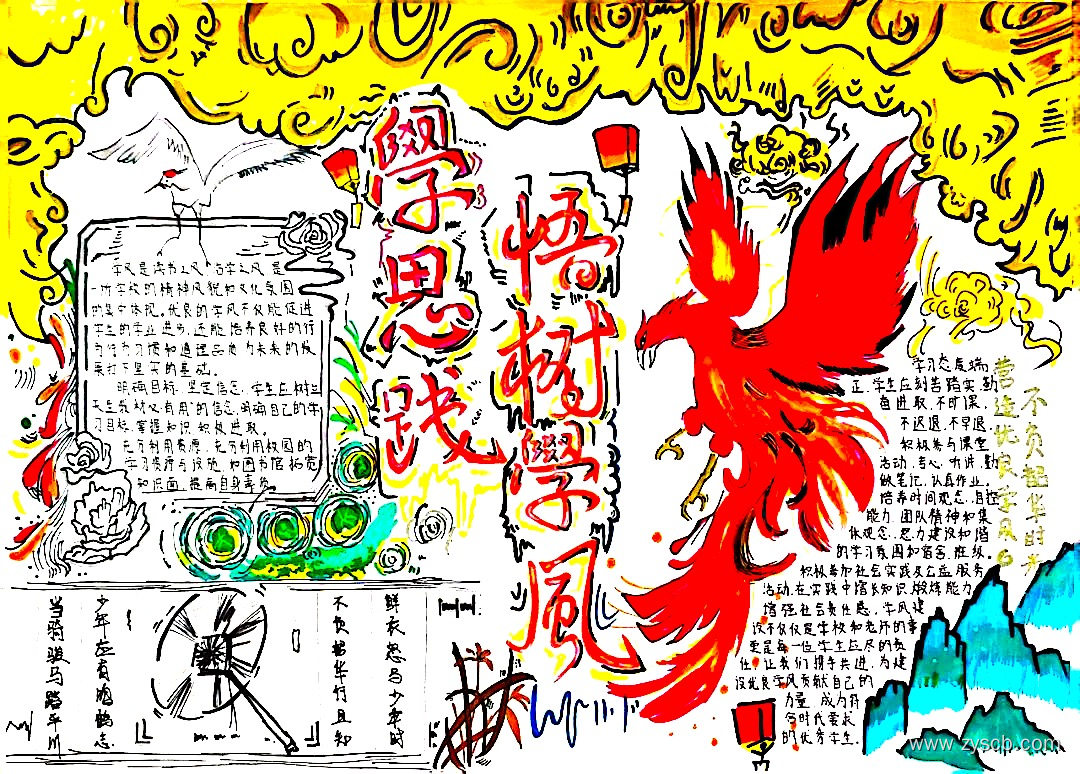 學思踐
悟樹學風
学风是读书之风
一所学校的精神风貌和文化氛围
的集中体现。优良的学风不仅能促进
学生的学业进步，还能培养良好的行
为行为习惯和道理品质为未来的发
展打下坚实的基础。
明确目标，坚定信念，学生应树立
有用"的信念，明确自己的学
习目标，掌握知识，积极进取。
充方利用资源，充方利用校园的
学习资源与设施，如图书馆拓宽
知识面，提高自身素养
学习态度端
正，学生应刻苦踏实，勤
奋进取，不旷课，
不迟退，不早退，
积极参与课堂
活动，专心听讲，勤
做笔记，认真作业。
培养时间观念，自控
能力，团队精神和集
体观念，努力建设和谐
的学习氛围和宿舍，胜纵。
积极参加社会实践及公益服务
活动，在实践中增长知识，锻炼能力
增强社会责任感，学风建
设不仅仅是学校和老师的事
更是每一位学生应尽的责
任，让我们携手共进，为建
设优良学风贡献自己的
力量，成为符
合时代要求
的优秀学生。
不负韶华时光
营造优良学风
鲜衣怒马少年时
不负韶华行且知
少年应有鸿鹄志
当骑骏马踏平川
www.zysqb.com